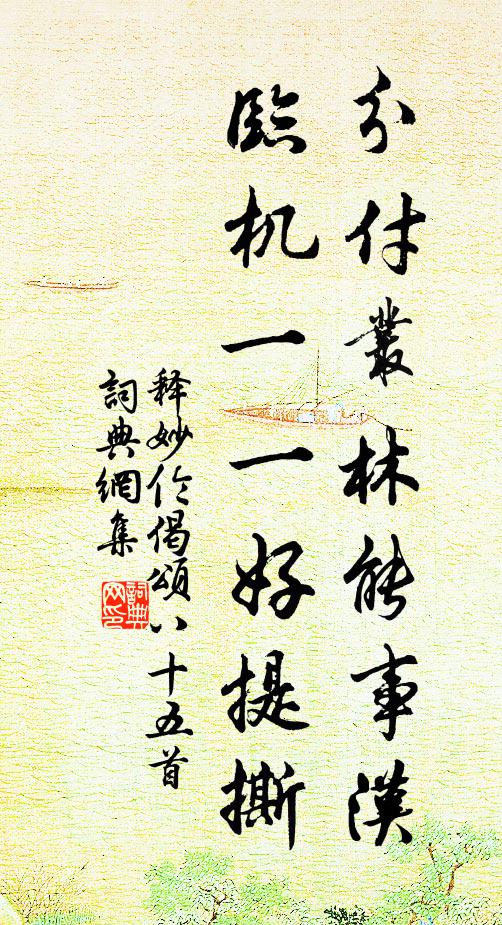 分付叢林能事漢
臨机一一好提撕
释妙伦偈頌八十五首
詞典網集
詞典
网印